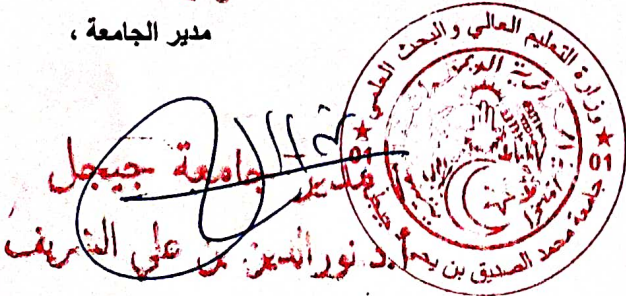 مدير الجامعة ،
وزارة التعليم العالي والبحث العلمي
01 01
جامعة محمد الصديق بن يحيى جيجل
مدير جامعة جيجل
أ.د نور الدين بن علي الشريف